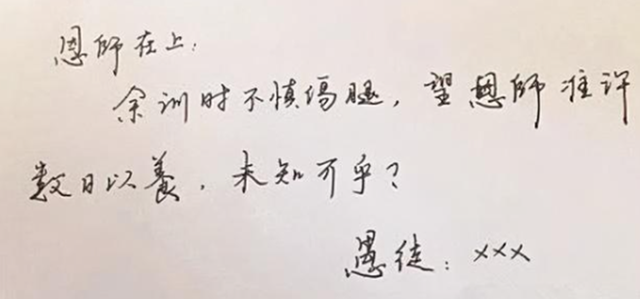 恩师在上：
余训时不慎伤腿，望恩师准许
数日以養，未知可乎？
愚徒：xxx